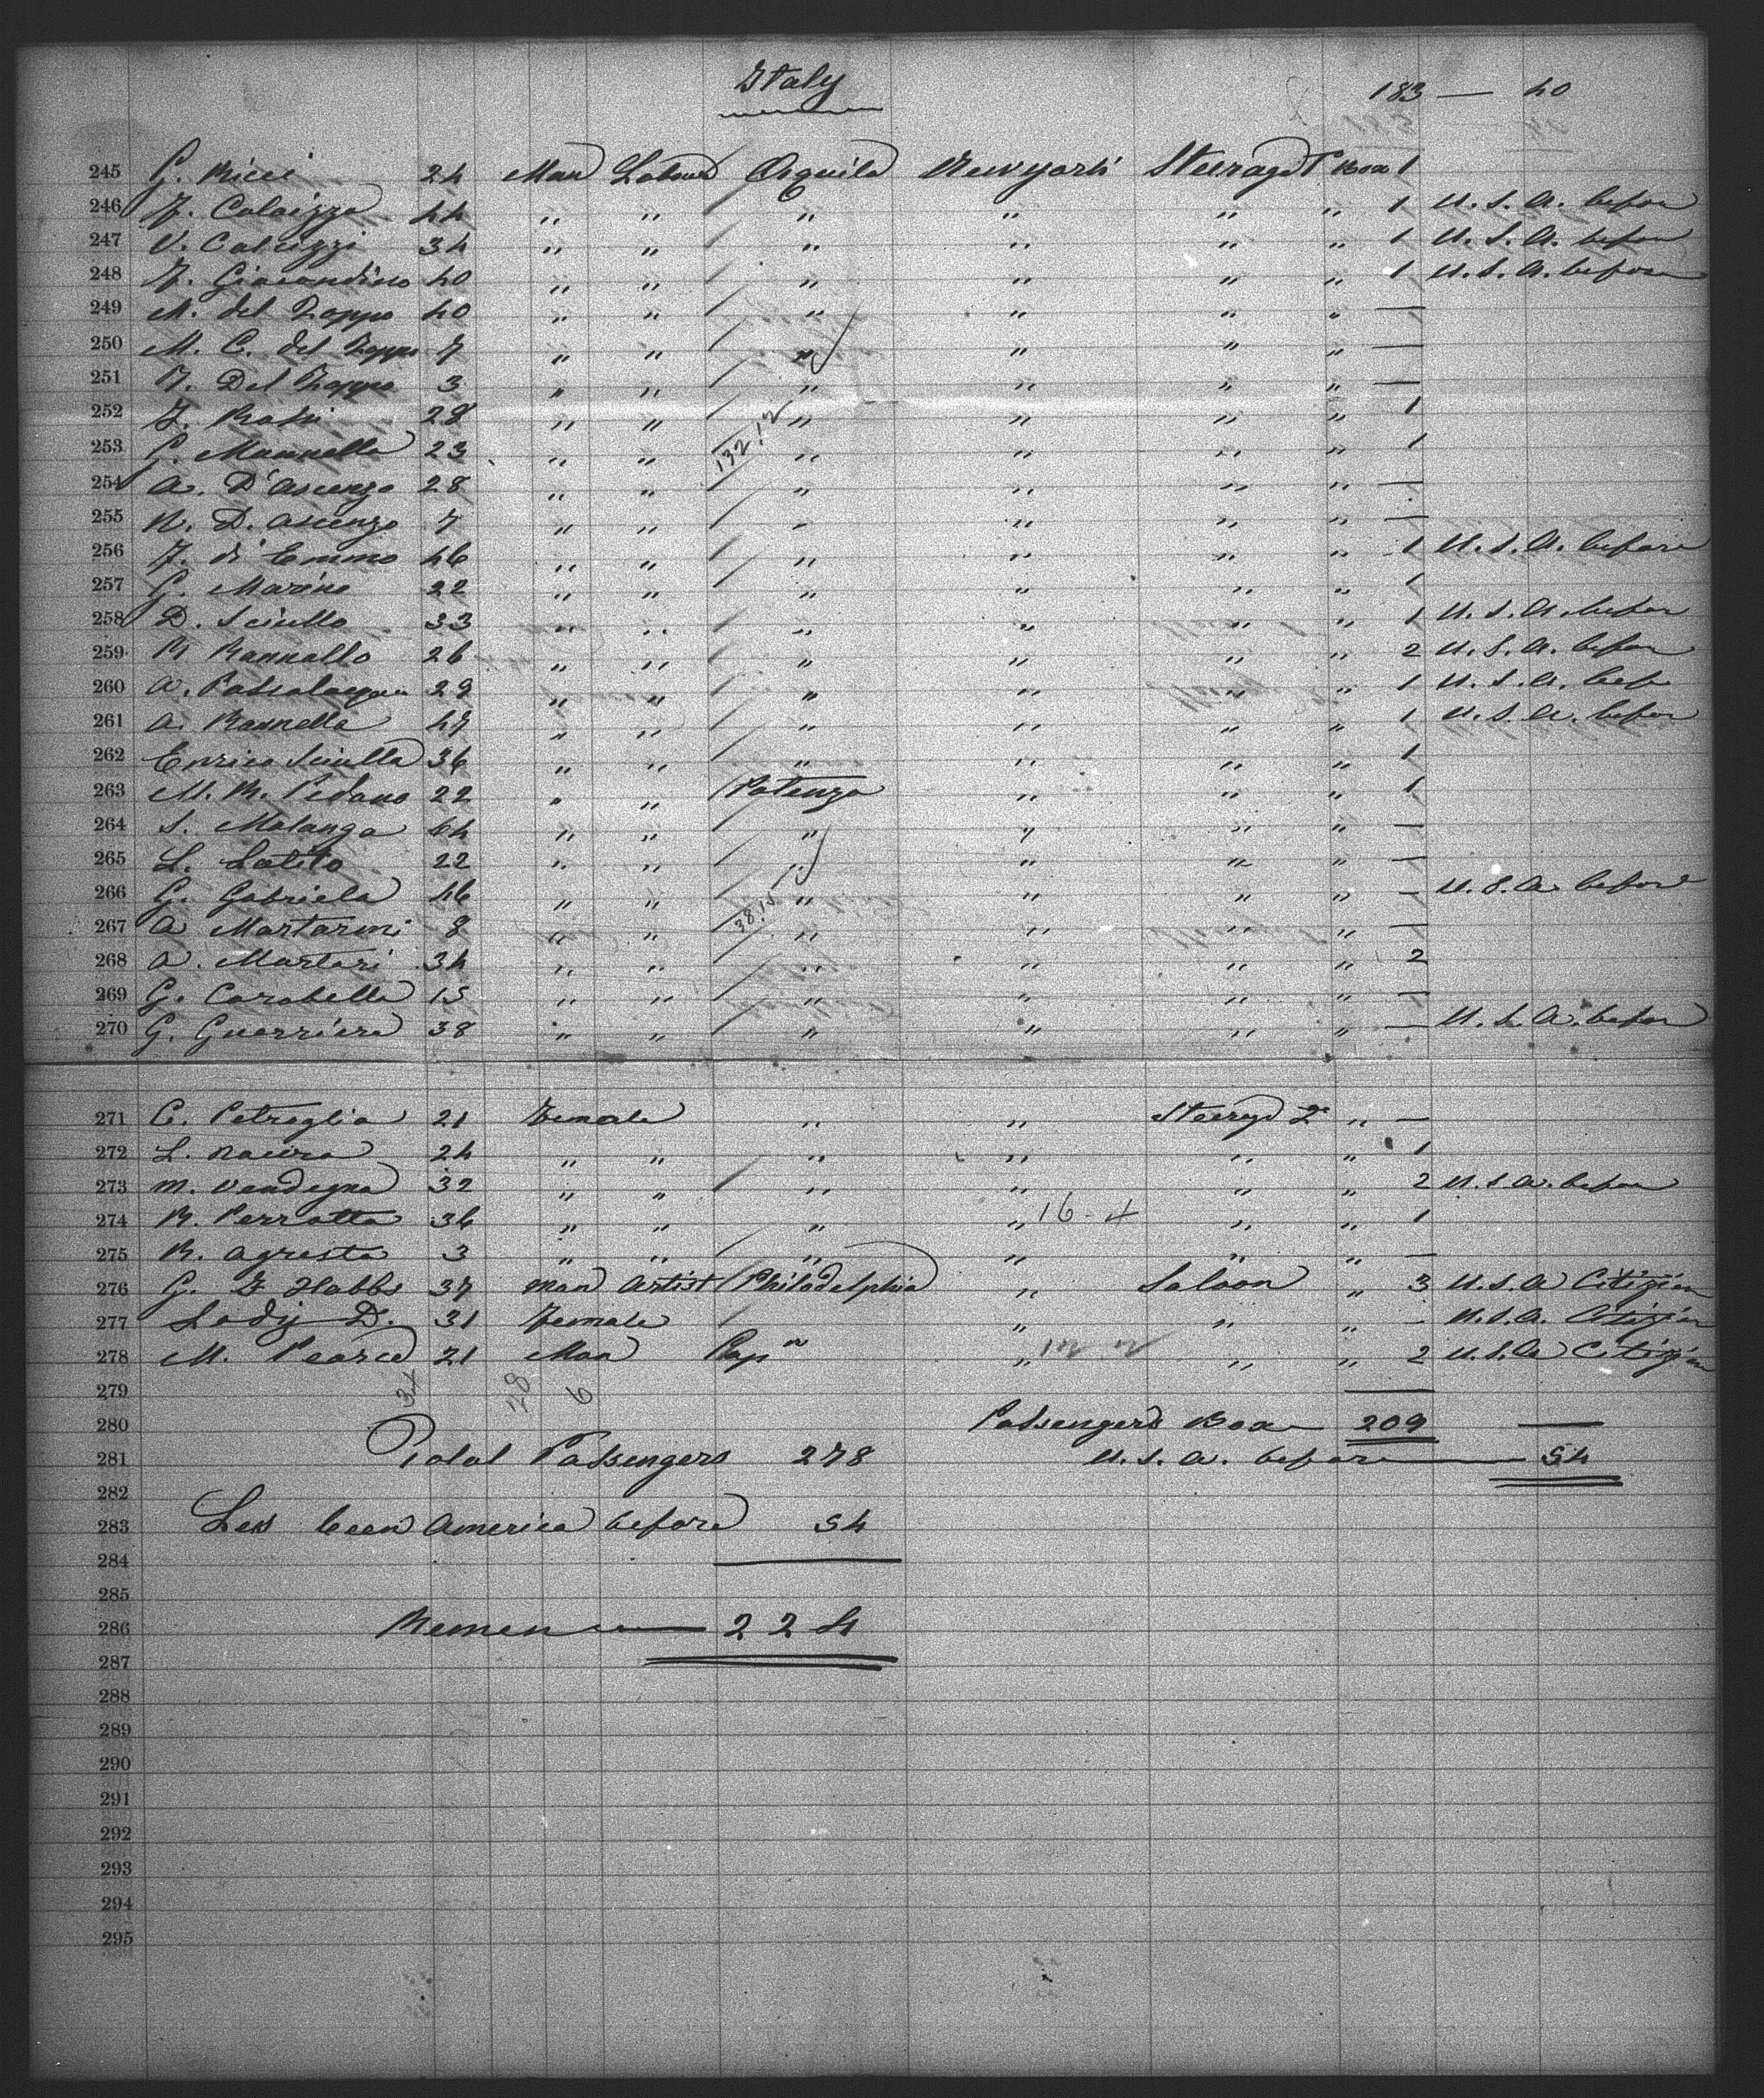 Italy
183 — 40
245 G. Ricci 24 Man Labour Aquila New york Steerage Box 1
246 F. Colaizzo 44 " " " " " " 1 U.S.A. before
247 V. Colaizzi 34 " " " " " " 1 U.S.A. before
248 F. Giacondino 40 " " " " " " 1 U.S.A. before
249 M. del Zoppo 40 " " " " " " —
250 M. C. del Zoppo 7 " " " " " " —
251 F. Del Zoppo 3 " " " " " " —
252 F. Rossi 28 " " " " " " 1
253 G. Mannella 23 " " " " " " 1
254 A. D'ascenzo 28 " " " " " " —
255 N. D. ascenzo 7 " " " " " " —
256 F. di Emmo 46 " " " " " " 1 U.S.A. before
257 G. Marino 22 " " " " " " 1
258 D. Sciullo 33 " " " " " " 1 U.S.A. befor
259 R Rannallo 26 " " " " " " 2 U.S.A. befor
260 A. 29 " " " " " " 1 U.S.A. bef
261 A. Rannella 47 " " " " " " 1 U.S.A. befor
262 Enrico Sciulla 36 " " " " " " 1
263 M. R. Pedano 22 " " Potenza " " " 1
264 S. Malanga 64 " " " " " " —
265 L. Lalito 22 " " " " " " —
266 G. Gabriela 46 " " " " " " — U.S.A. before
267 A Martorini 8 " " " " " " —
268 A. Martari 34 " " " " " " 2
269 G. Carabella 15 " " " " " " —
270 G. Guerriera 38 " " " " " " — U.S.A. before
271 C. Petraglia 21 Female " " Steerage 2 " —
272 L. 24 " " " " " " 1
273 M. Vendegna 32 " " " " " " 2 U.S.A. before
274 R. Perrotta 36 " " " " 16-4 " " 1
275 R. Agresta 3 " " " " " " —
276 G. F Hobbs 37 Man Artist Philadelphia " Saloon " 3 U.S.A Citizien
277 Lady D. 31 Female " " " - U.S.A. Citizien
278 M. Pearce 21 Man " " " 2 U.S.A Citizien
279
280 Passengers Box — 209
281 Total Passengers 278 U.S.A. before — 54
282
283 Less been America before 54
284
285
286 Remen — 224
287
288
289
290
291
292
293
294
295